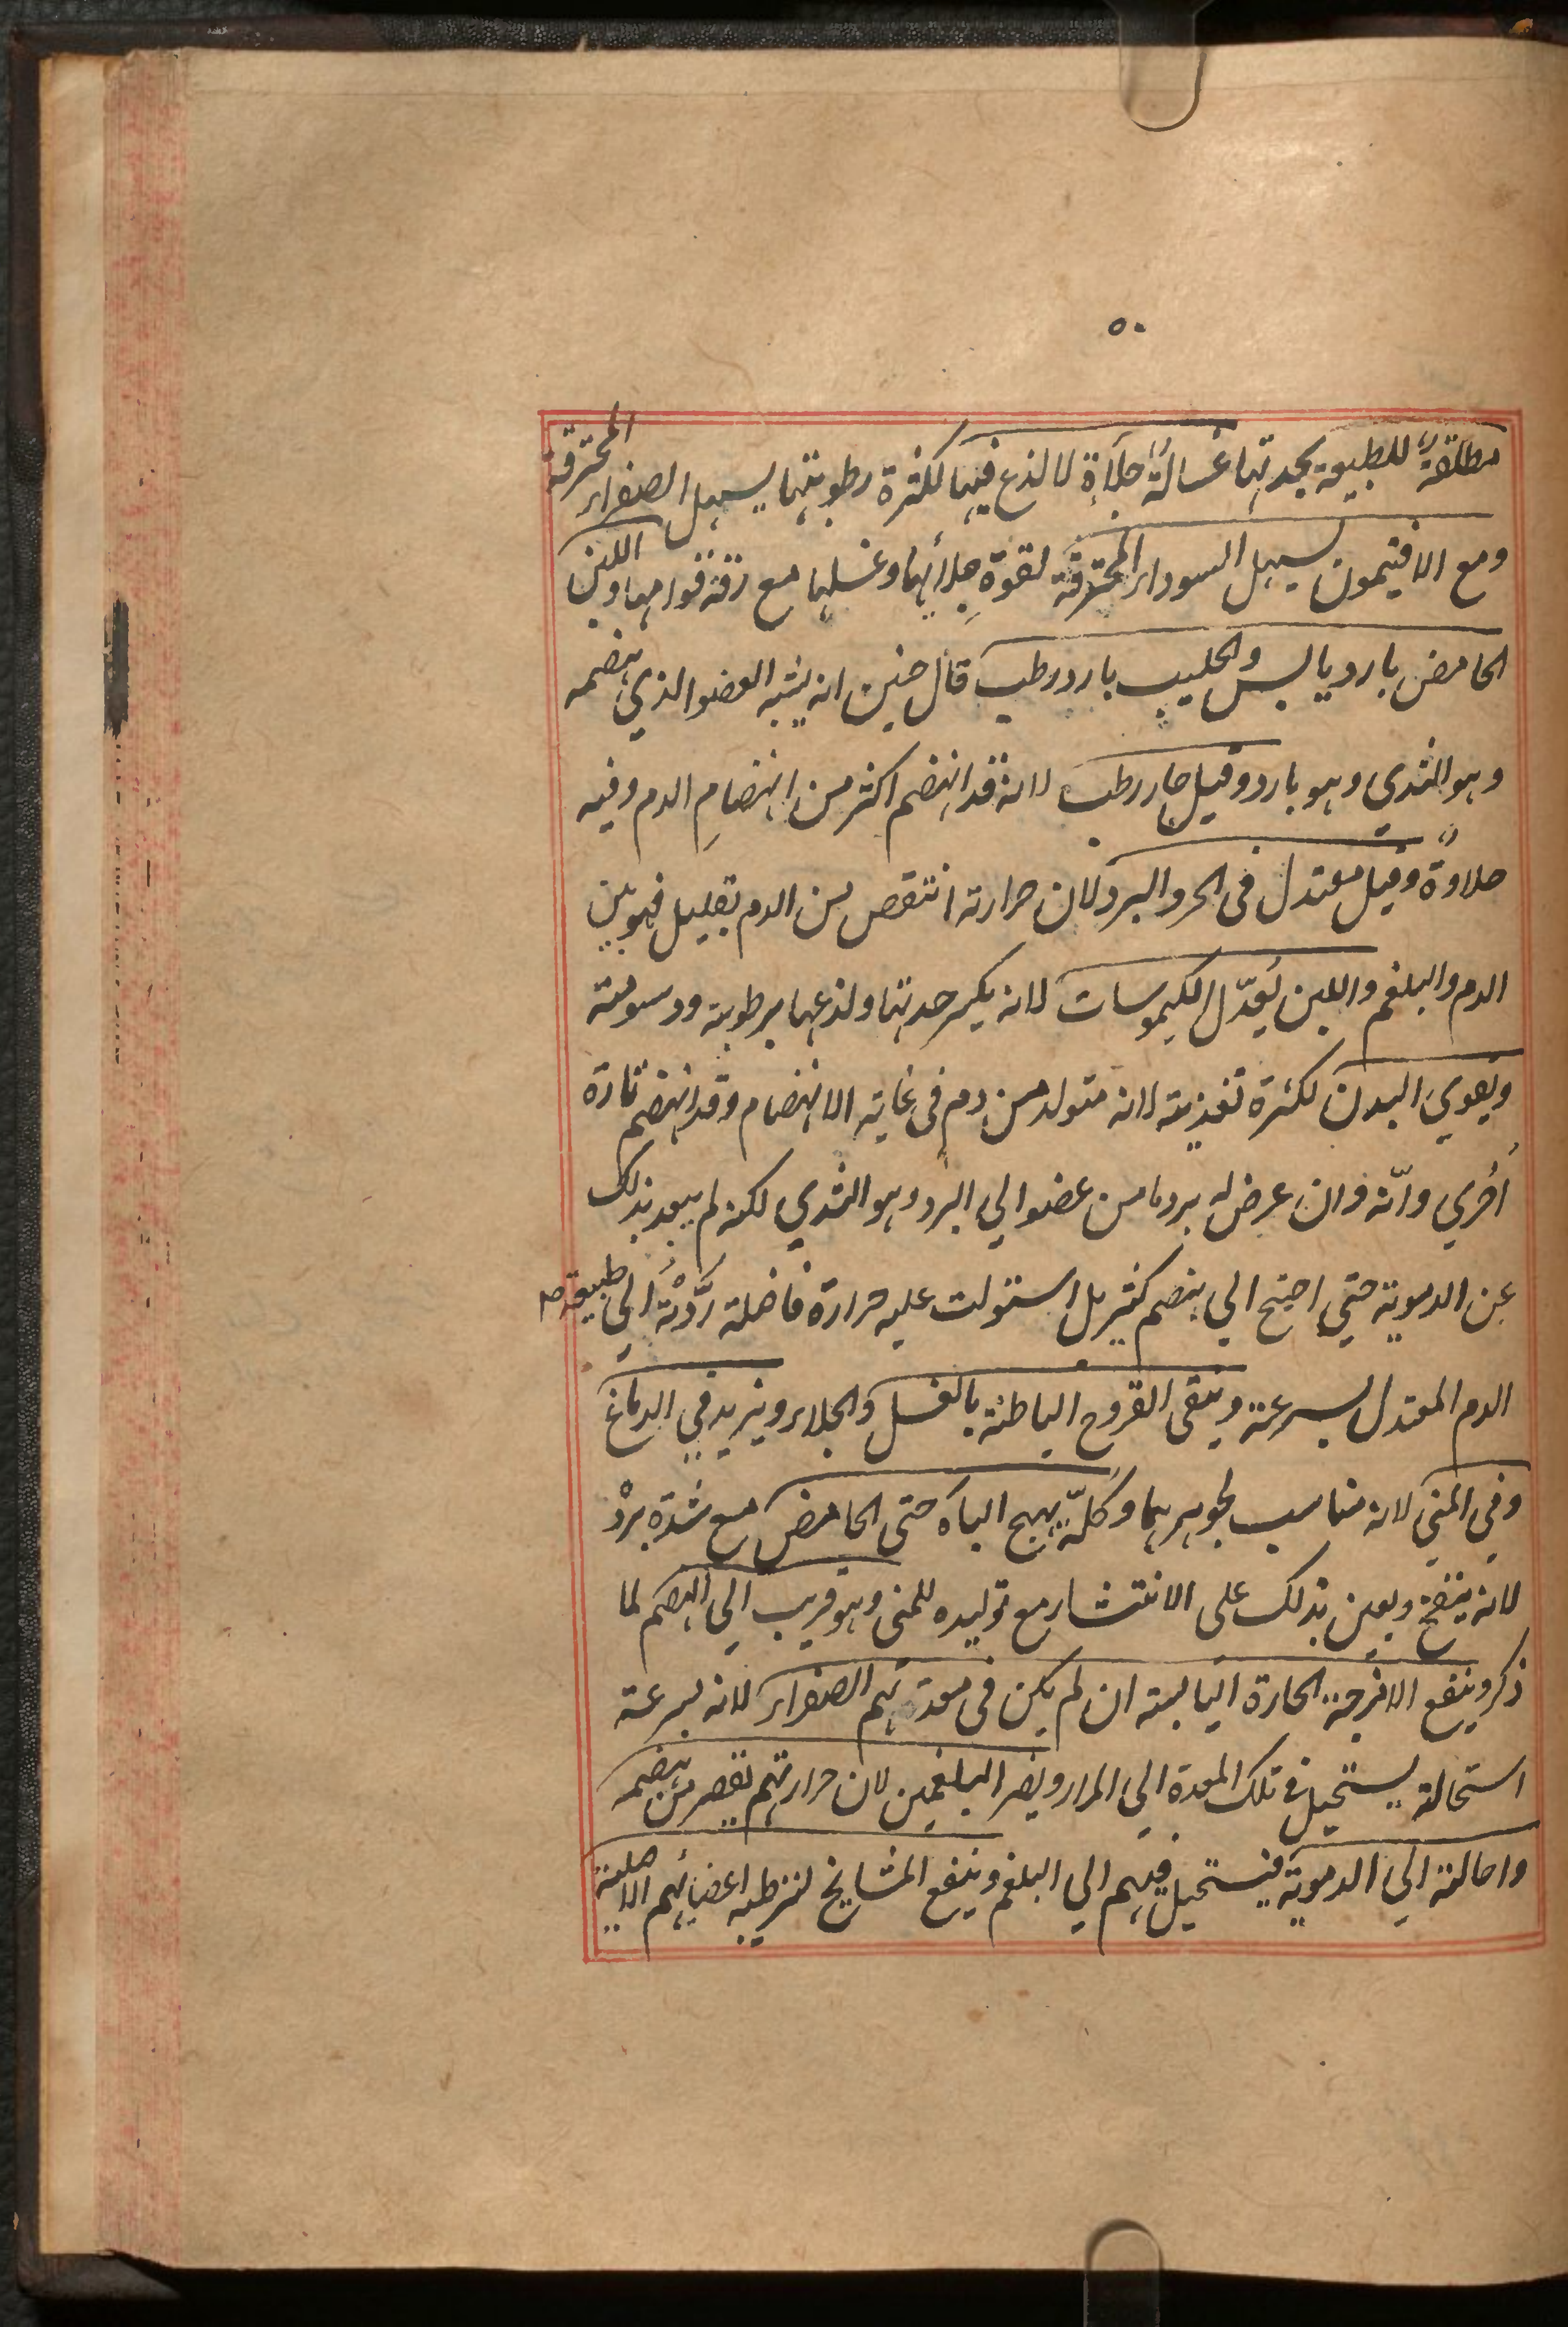 ٥٠
مطلقةٌ للطبيعة بحدتها غسالةٌ جلآءة لا لذع فيها لكثرة رطوبتها يسهل الصفراء المحترقة
ومع الافتيمون يسهل السوداء المحترقة لقوة جِلائها وغسلها مع رقة قوامها واللبن
الحامض بارد يابس والحليب بارد رطب قال حنين انه يشبه العضو الذي يهضمه
وهو الثدي وهو بارد وقيل حار رطب لانه قد انهضم اكثر من انهضامِ الدم وفيه
حلاوةٌ وقيل معتدل فى الحر والبرد لان حرارته انتقص من الدم بقليل فهو بين
الدم والبلغم واللبن يُعدّل الكيموسات لانه يكسر حدتها ولذعها برطوبته ودسومته
ويقوي البدن لكثرة تغذيته لانه متولد من دم فى غاية الانهضام وقد انهضم تارة
اُخري وانّه وان عرض له برد ما من عضو الي البرد وهو الثدي لكنه لم يبعد بذلك
عن الدموية حتي احتيج الي هضم كثير بل استولت عليه حرارة فاضلة ردّته الي طبيعة
الدم المعتدل بسرعة وينقى القروح الباطنة بالغسل والجلاء ويزيد في الدماغ
وفي المني لانه مناسب لجوهرهما وكلّه يهيج الباه حتى الحامض مع شدة برْد
لانه ينفخ ويعين بذلك على الانتشار مع توليده للمنى وهو قريب الي الهضم لما
ذكر وينفع الامزجة الحارة اليابسة ان لم يكن فى معدتهم الصفراء لانه لسرعة
استحالته يستحيل فى تلك المعدة الي المرار ويضر البلغمين لان حرارتهم تقصر من هضمه
واحالته الي الدموية فيستحيل فيهم الي البلغم وينفع المشايخ لترطيبه اعضائهم الاصلية